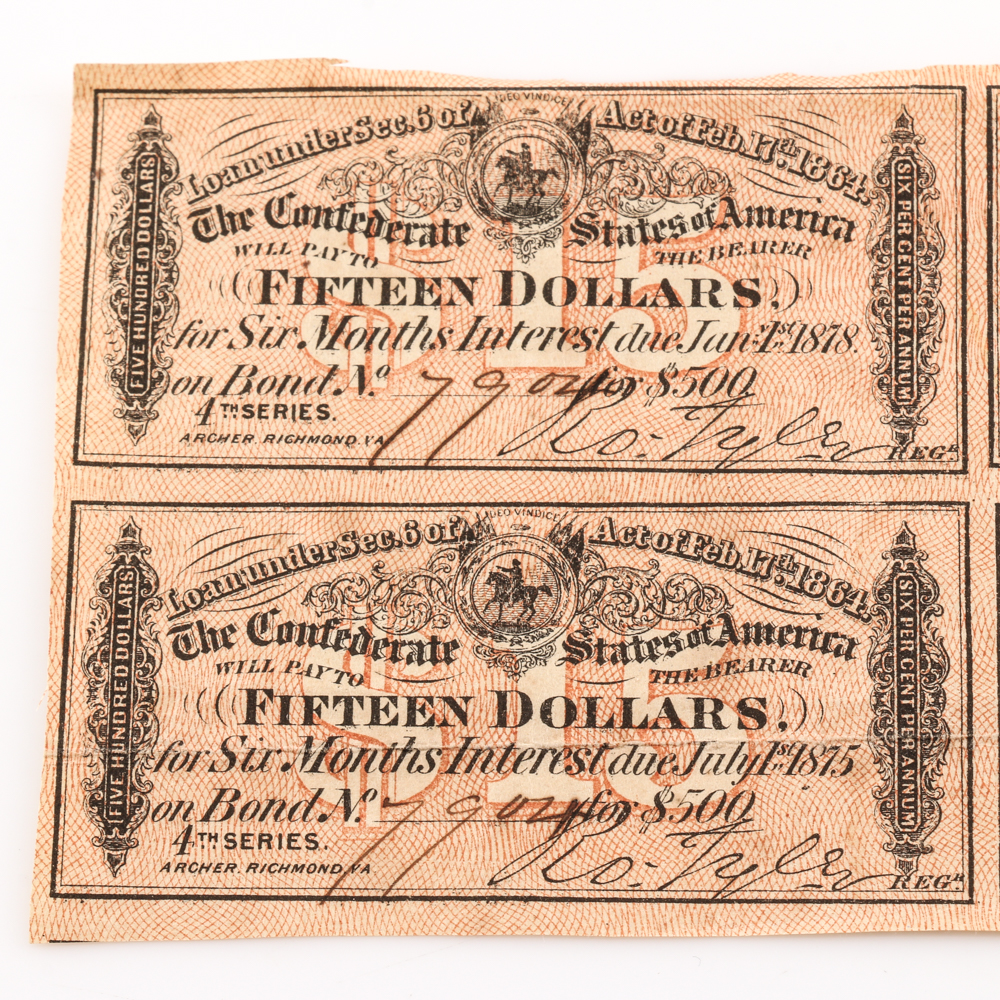 DEO VINDICE
Loan under Sec. 6 of Act of Feb. 17th 1864.
The Confederate States of America
WILL PAY TO THE BEARER
FIFTEEN DOLLARS,
for Six Months Interest due Jan: 1st 1878.
on Bond No. 7904 for $500
4TH SERIES.
ARCHER. RICHMOND. VA
Ro. Tyler REGR.
FIVE HUNDRED DOLLARS
SIX PER CENT PER ANNUM
$15
DEO VINDICE
Loan under Sec. 6 of Act of Feb. 17th 1864.
The Confederate States of America
WILL PAY TO THE BEARER
FIFTEEN DOLLARS,
for Six Months Interest due July 1st 1875
on Bond No. 7904 for $500
4TH SERIES.
ARCHER. RICHMOND. VA
Ro. Tyler REGR.
FIVE HUNDRED DOLLARS
SIX PER CENT PER ANNUM
$15